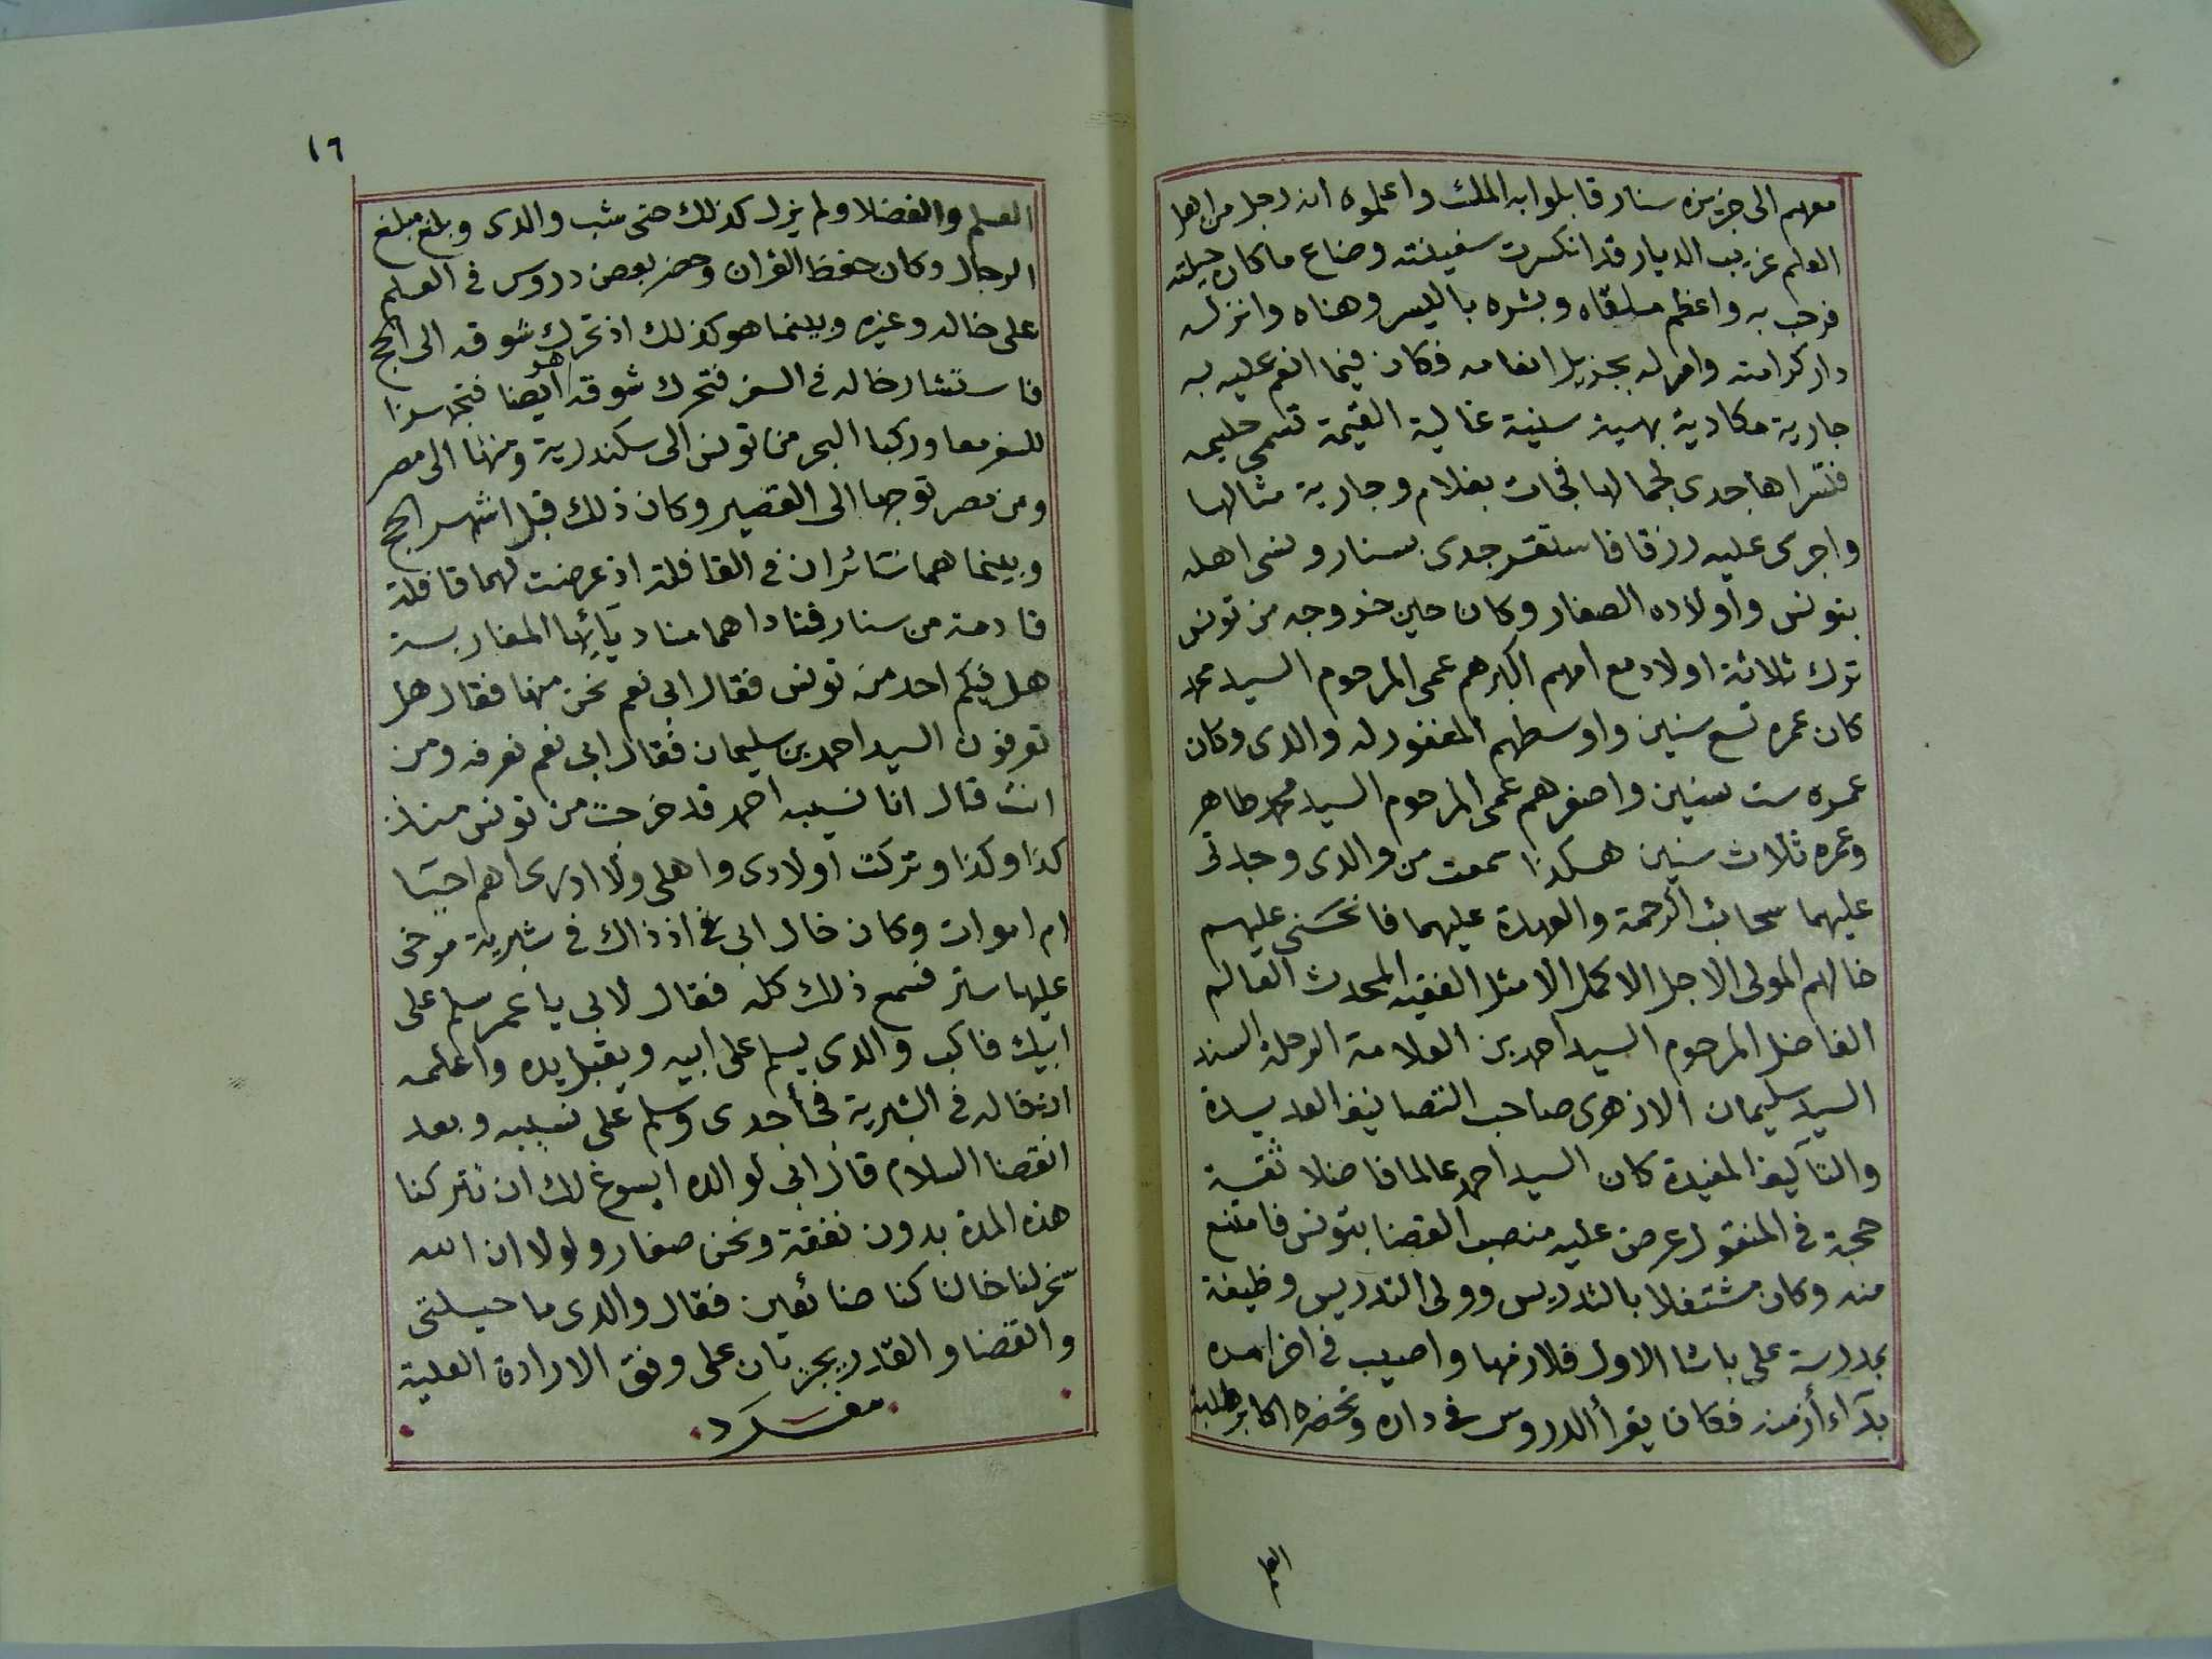 معهم الى جزيرة سنار قابلوا به الملك واعلموه انه رجل من اهل
العلم غريب الديار قد انكسرت سفينته وضاع ما كان حيلته
فرحب به واعظم ملقاه وبشره باليسر وهناه وانزله
دار كرامته وامر له بجزيل انعامه فكان فيما انعم عليه به
جارية مكادية بهية سنية غالية القيمة تسمى حليمه
فتسراها جدى لجمالها فجات بغلام وجارية مثالها
واجرى عليه رزقا فاستقر جدى بسنار ونسى اهله
بتونس واولاده الصغار وكان حين خروجه من تونس
ترك ثلاثة اولاد مع امهم اكبرهم عمى المرحوم السيد محمد
كان عمره تسع سنين واوسطهم المغفور له والدى وكان
عمره ست سنين واصغرهم عمى المرحوم السيد محمد طاهر
وعمره ثلاث سنين هكذا سمعت من والدى وجدتى
عليهما سحائب الرحمة والعهدة عليهما فانحنى عليهم
خالهم المولى الاجل الاكمل الامثل الفقيه المحدث العالم
الفاضل المرحوم السيد احمد بن العلامة الرحلة السند
السيد سليمان الازهرى صاحب التصانيف العديدة
والتآليف المفيدة كان السيد احمد عالما فاضلا ثقية
حجة فى المنقول عرض عليه منصب القضا بتونس فامتنع
منه وكان مشتغلا بالتدريس وولى التدريس وظيفة
بمدرسة على باشا الاول فلازمها واصيب فى اخر امره
بدآء أزمنه فكان يقرأ الدروس فى داره وتحضره اكابر طلبة
العلم
١٦
العلم والفضلا ولم يزل كذلك حتى شب والدى وبلغ مبلغ
الرجال وكان حفظ القران وحضر بعض دروس فى العلم
على خاله وغيره وبينما هو كذلك اذ تحرك شوقه الى الحج
فاستشار خاله فى السفر فتحرك شوقه هو ايضا فتجهزا
للسفر معا وركبا البحر من تونس الى سكندرية ومنها الى مصر
ومن مصر توجها الى القصير وكان ذلك قبل اشهر الحج
وبينما هما سائران فى القافلة اذ عرضت لهما قافلة
قادمة من سنار فناداهما مناد يآئها المغاربة
هل فيكم احد من تونس فقال ابى نعم نحن منها فقال هل
تعرفون السيد احمد بن سليمان فقال ابى نعم نعرفه ومن
انت قال انا نسيبه احمد قد خرجت من تونس منذ
كذا وكذا وتركت اولادى واهلى ولا ادرى اهم احيا
ام اموات وكان خال ابى فى اذ ذاك فى شبرية مرخى
عليها ستر فسمع ذلك كله فقال لابى يا عمر سلم على
ابيك فاكب والدى يسلم على ابيه ويقبل يده واعلمه
ان خاله فى الشبرية فجأ جدى وسلم على نسيبه وبعد
انقضا السلام قال ابى لوالده ايسوغ لك ان تتركنا
هذه المدة بدون نفقة ونحن صغار ولولا ان الله
سخر لنا خالنا كنا ضائعين فقال والدى ما حيلتى
والقضا والقدر يجريان على وفق الارادة العلية